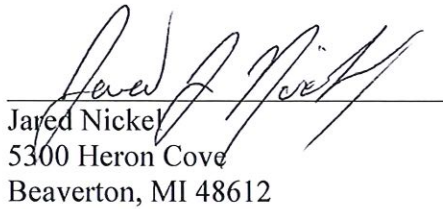 Jared J Nickel
Jared Nickel
5300 Heron Cove
Beaverton, MI 48612